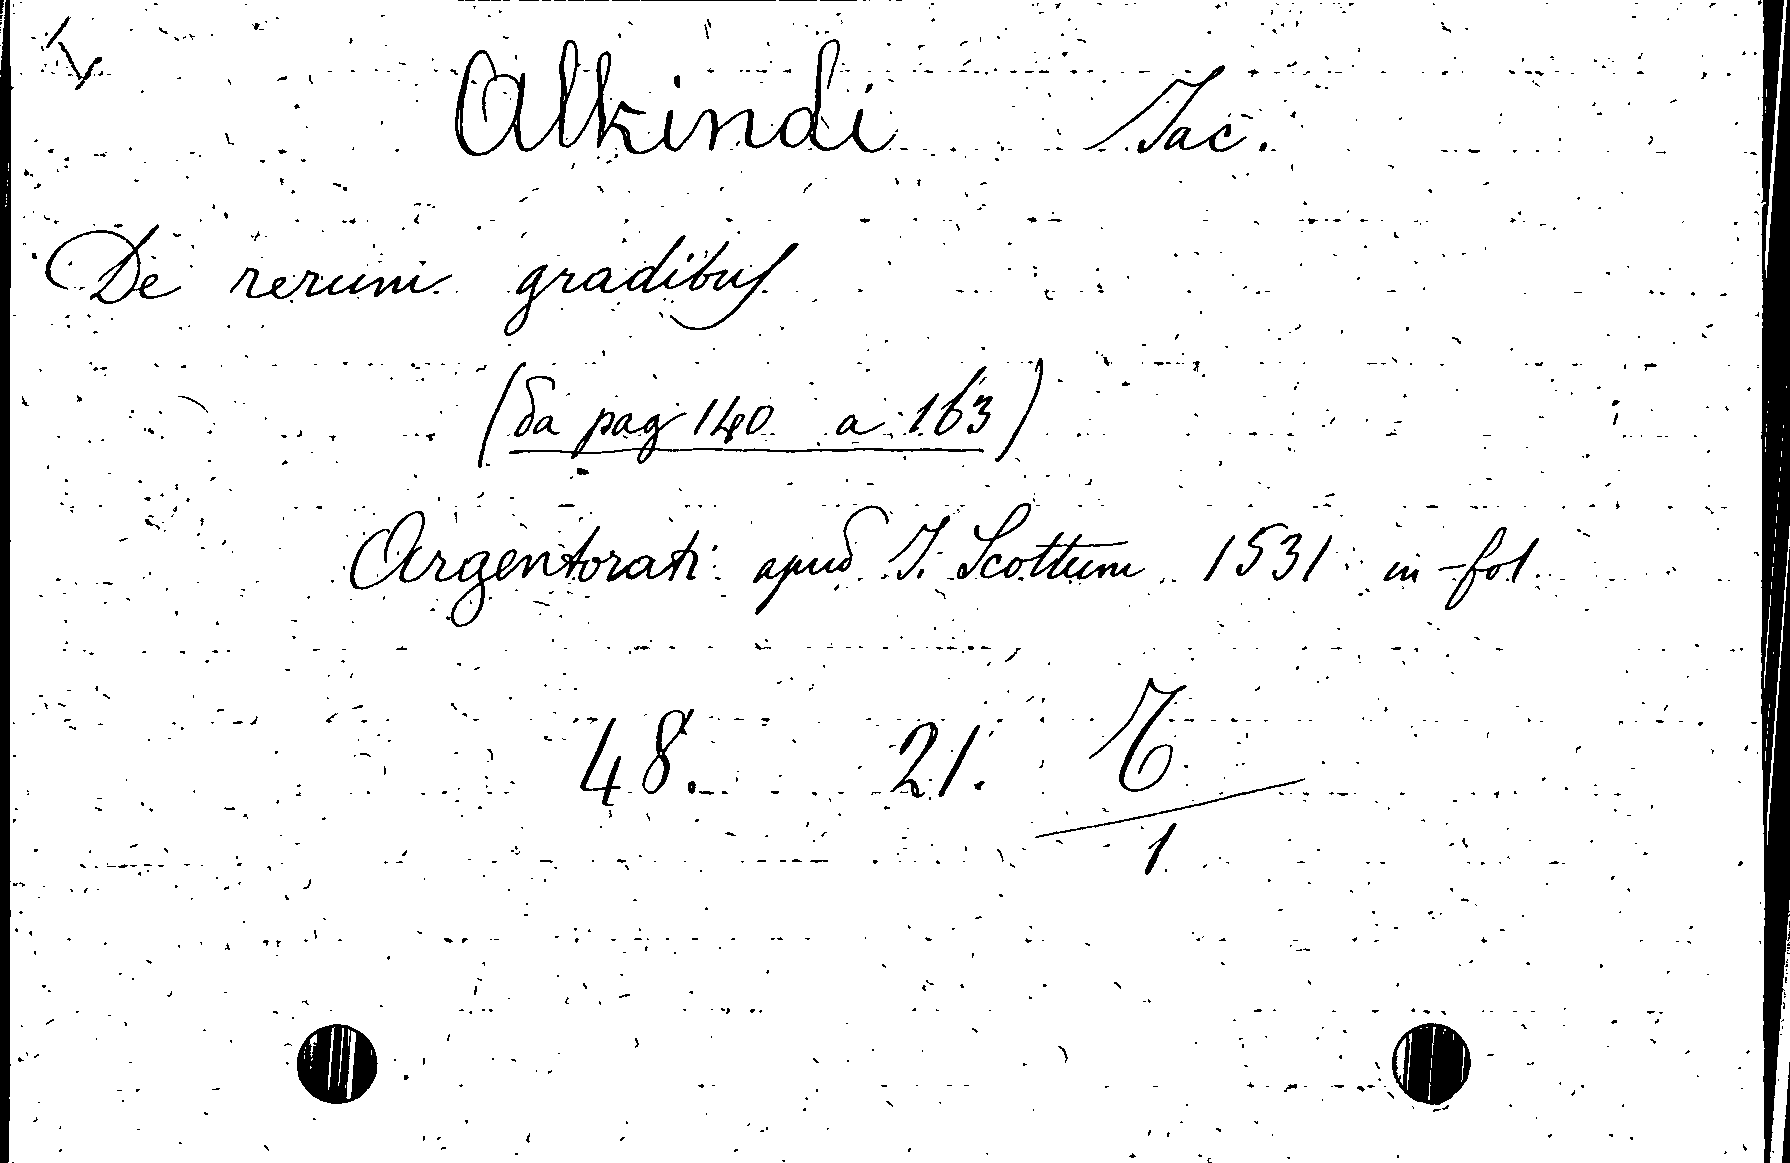 Alkindi Jac.
De rerum gradibus
(da pag 140 a 163)
Argentorati apud J. Scottum 1531 in-fol
48. 21.
1